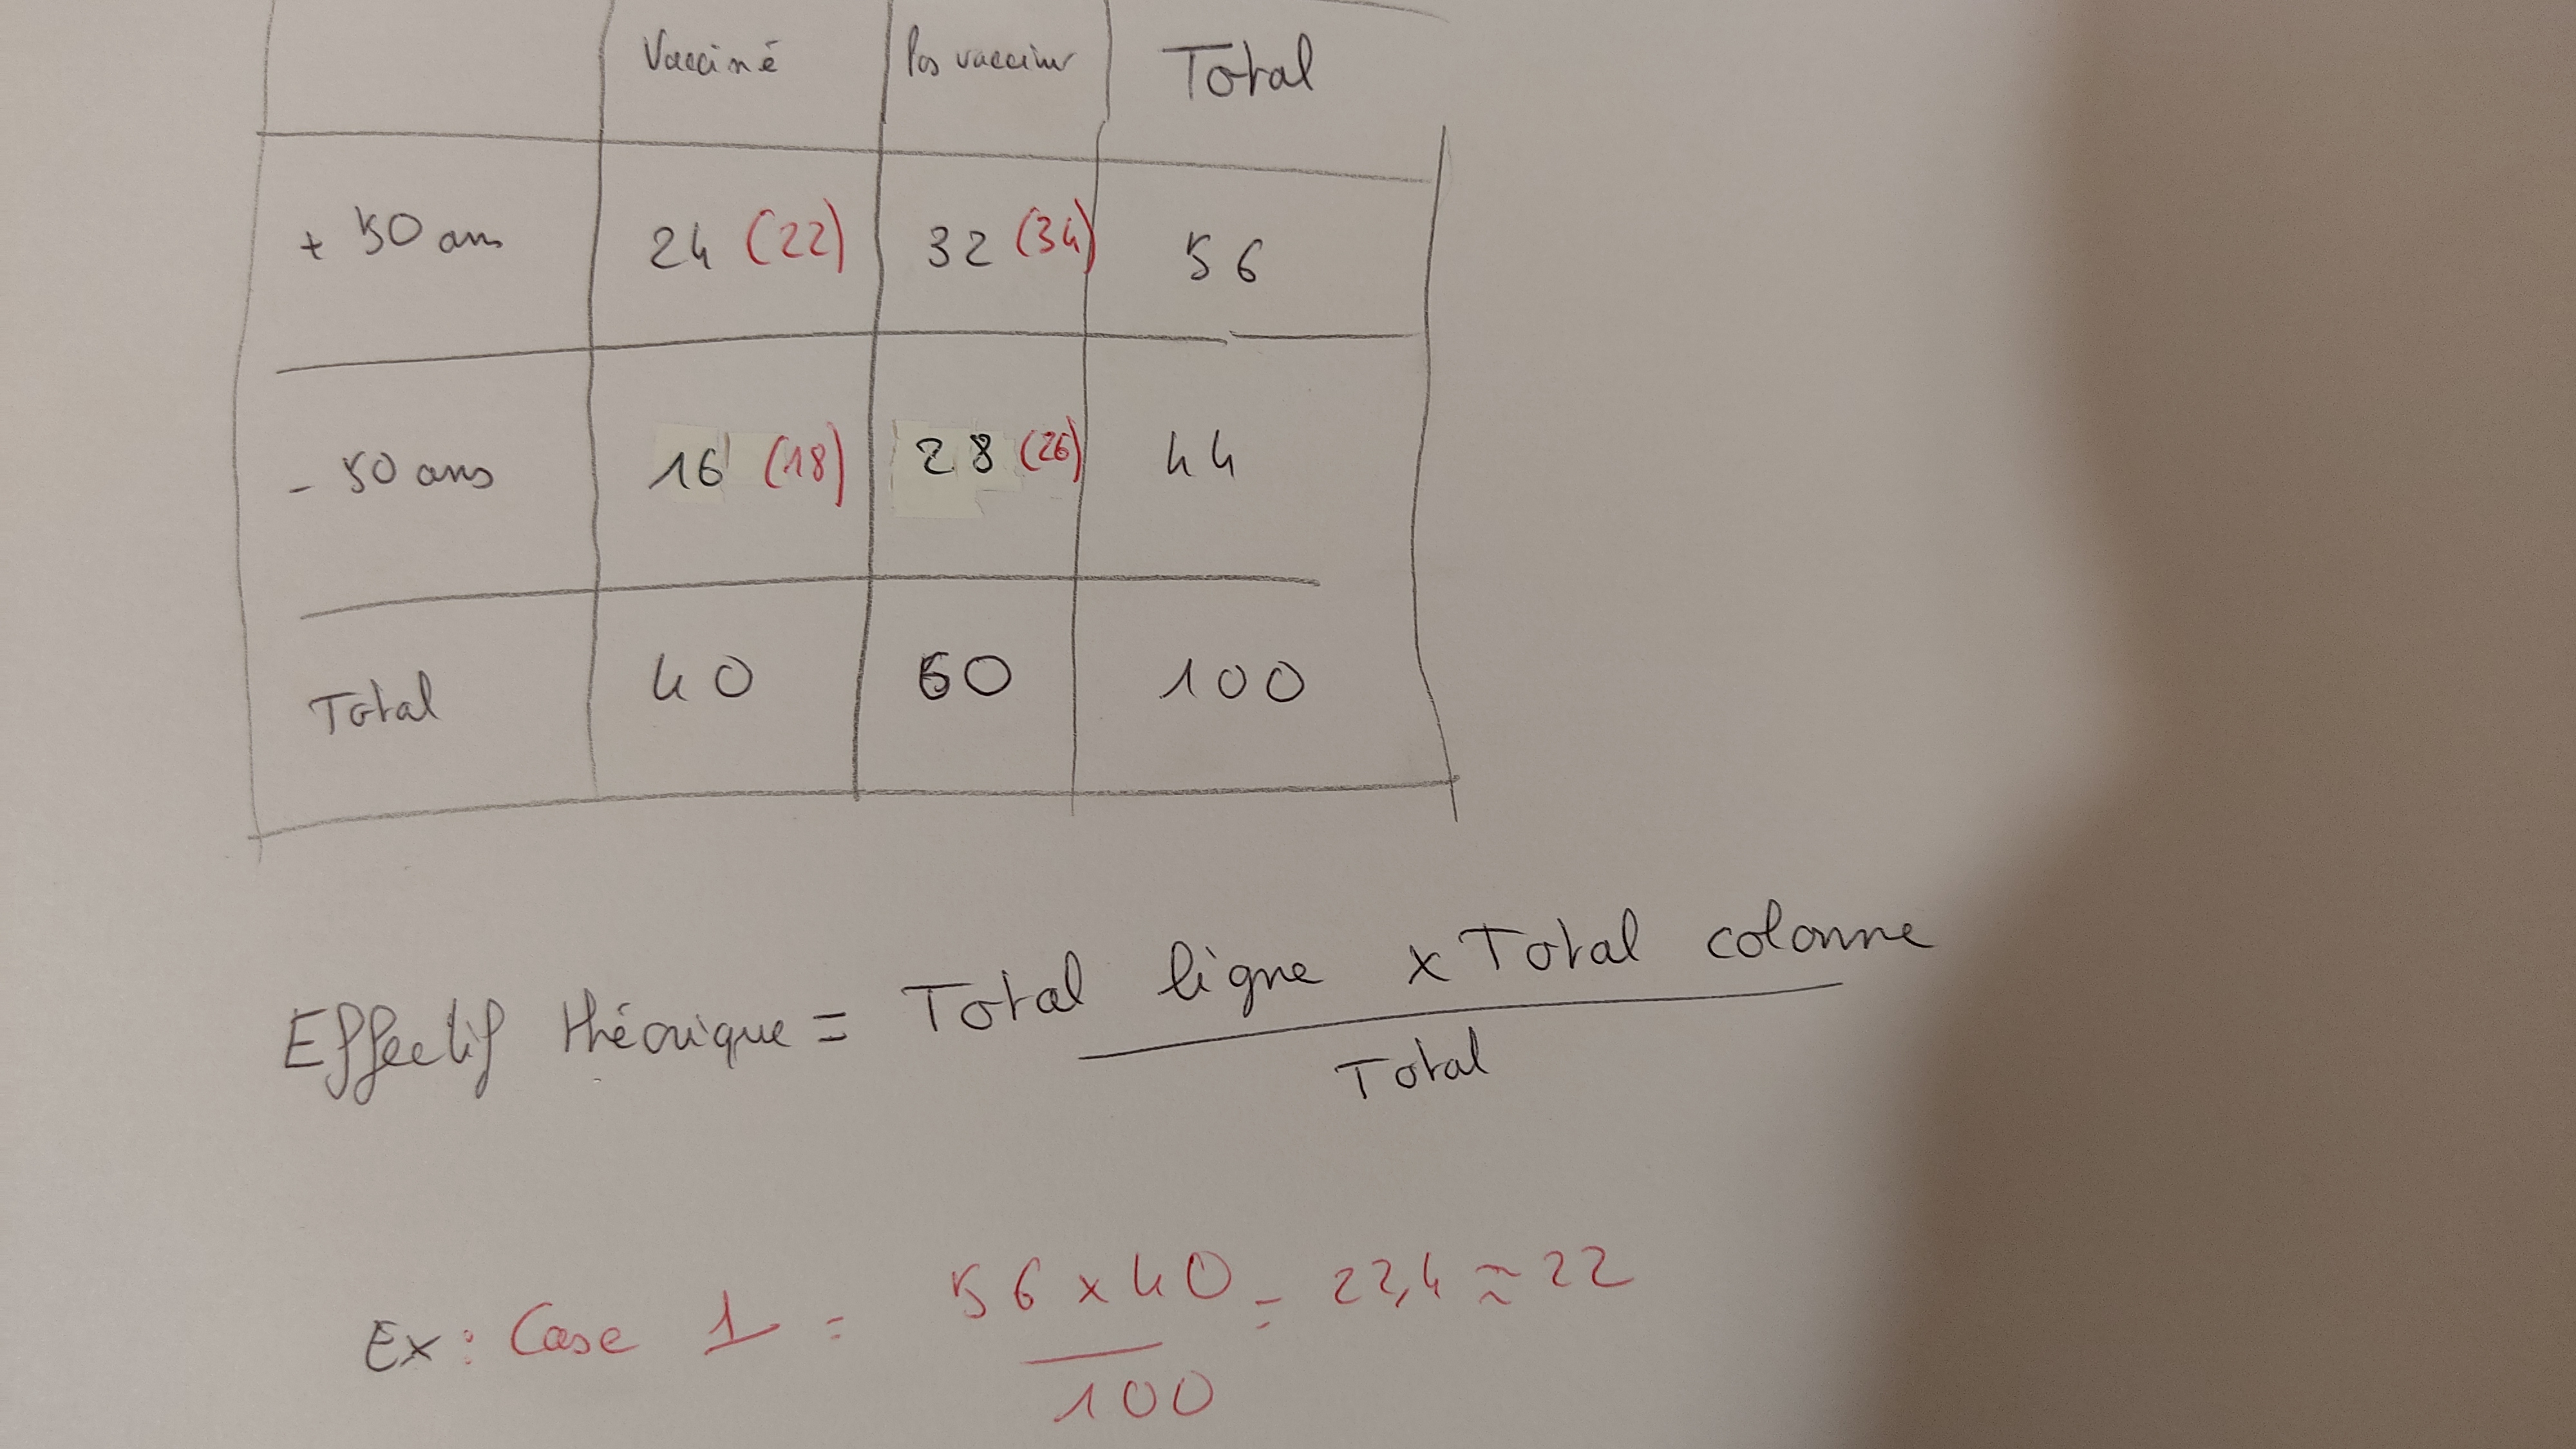 Vacciné Pas vacciné Total
+ 50 ans 24 (22) 32 (34) 56
- 50 ans 16 (18) 28 (26) 44
Total 40 60 100
Effectif théorique = Total ligne x Total colonne
Total
Ex : Case 1 = 56 x 40 = 22,4 ≈ 22
100